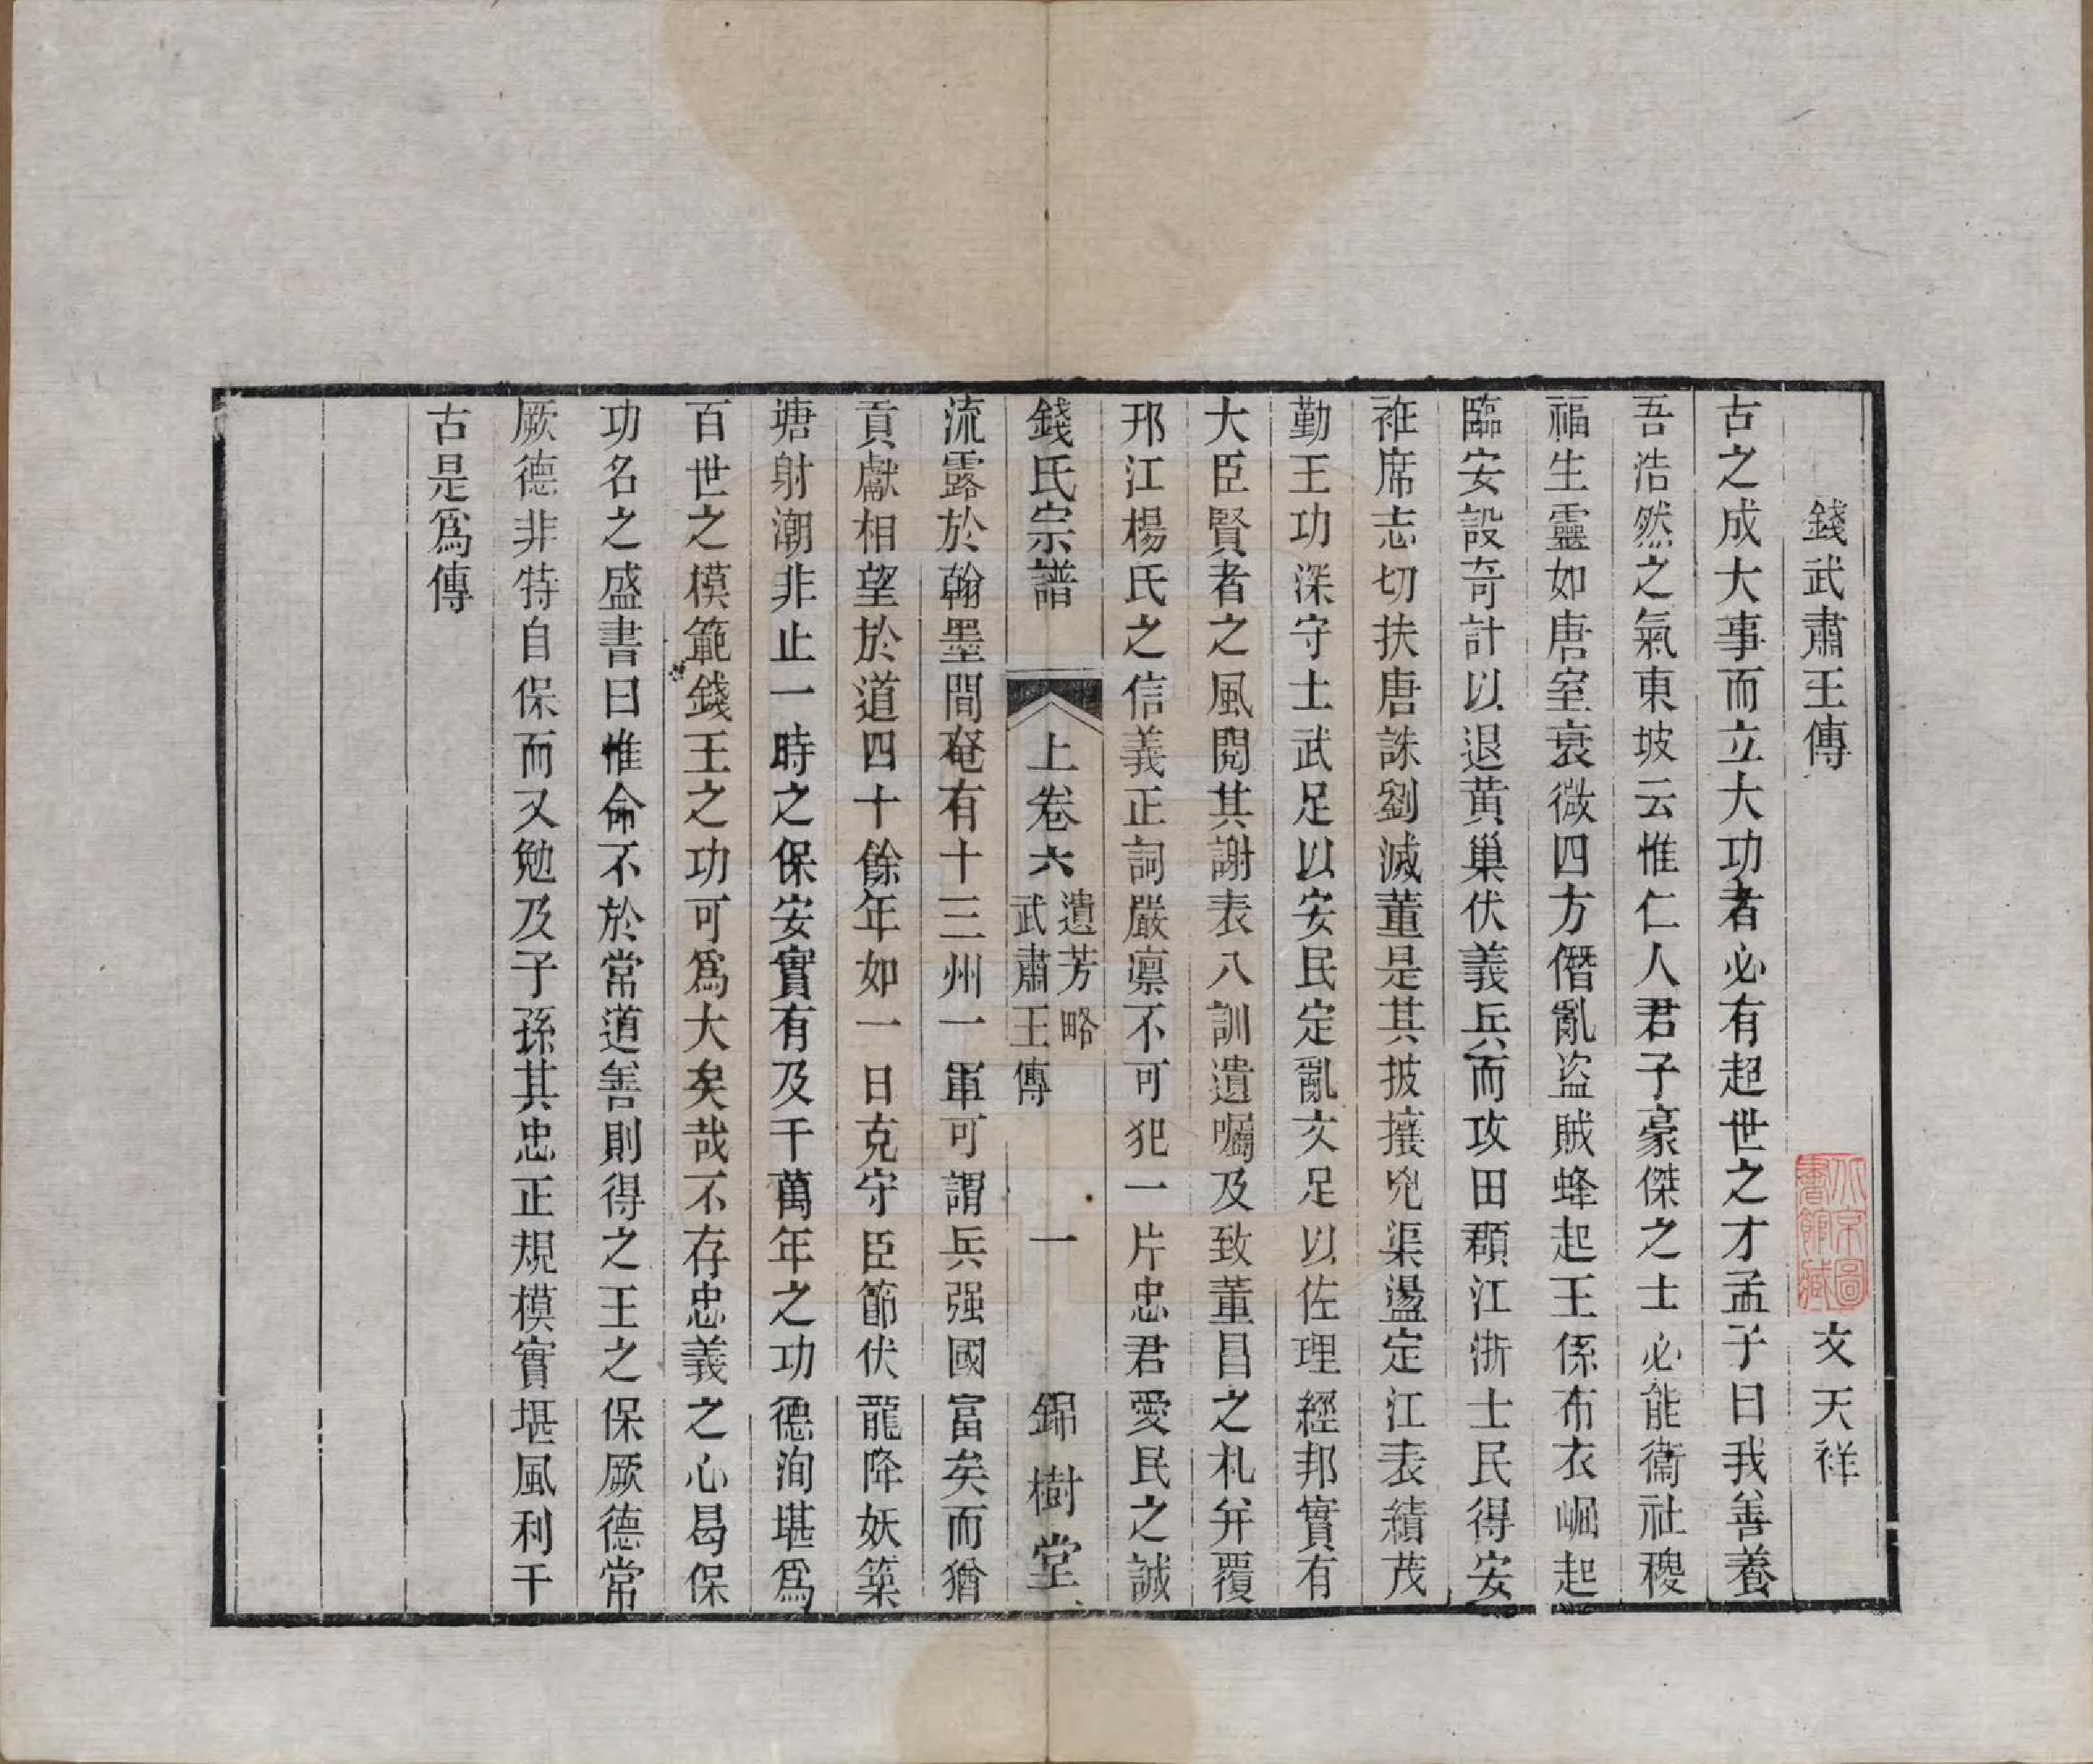 錢武肅王傳　文天祥
古之成大事而立大功者必有超世之才孟子曰我善養
吾浩然之氣東坡云惟仁人君子豪傑之士必能衞社稷
福生靈如唐室衰微四方僭亂盜賊蜂起王係布衣崛起
臨安設奇計以退黃巢伏義兵而攻田頵江浙士民得安
袵席志切扶唐誅劉滅董是其披攘兇渠盪定江表績茂
勤王功深守土武足以安民定亂文足以佐理經邦實有
大臣賢者之風閱其謝表八訓遺囑及致董昌之札并覆
邗江楊氏之信義正詞嚴凛不可犯一片忠君愛民之誠
錢氏宗譜　上卷六　遺芳略　武肅王傳　一　錦樹堂
流露於翰墨間奄有十三州一軍可謂兵强國富矣而猶
貢獻相望於道四十餘年如一日克守臣節伏龍降妖築
塘射潮非止一時之保安實有及千萬年之功德洵堪爲
百世之模範錢王之功可爲大矣哉不存忠義之心曷保
功名之盛書曰惟命不於常道善則得之王之保厥德常
厥德非特自保而又勉及子孫其忠正規模實堪風利千
古是爲傳
北京圖書館藏